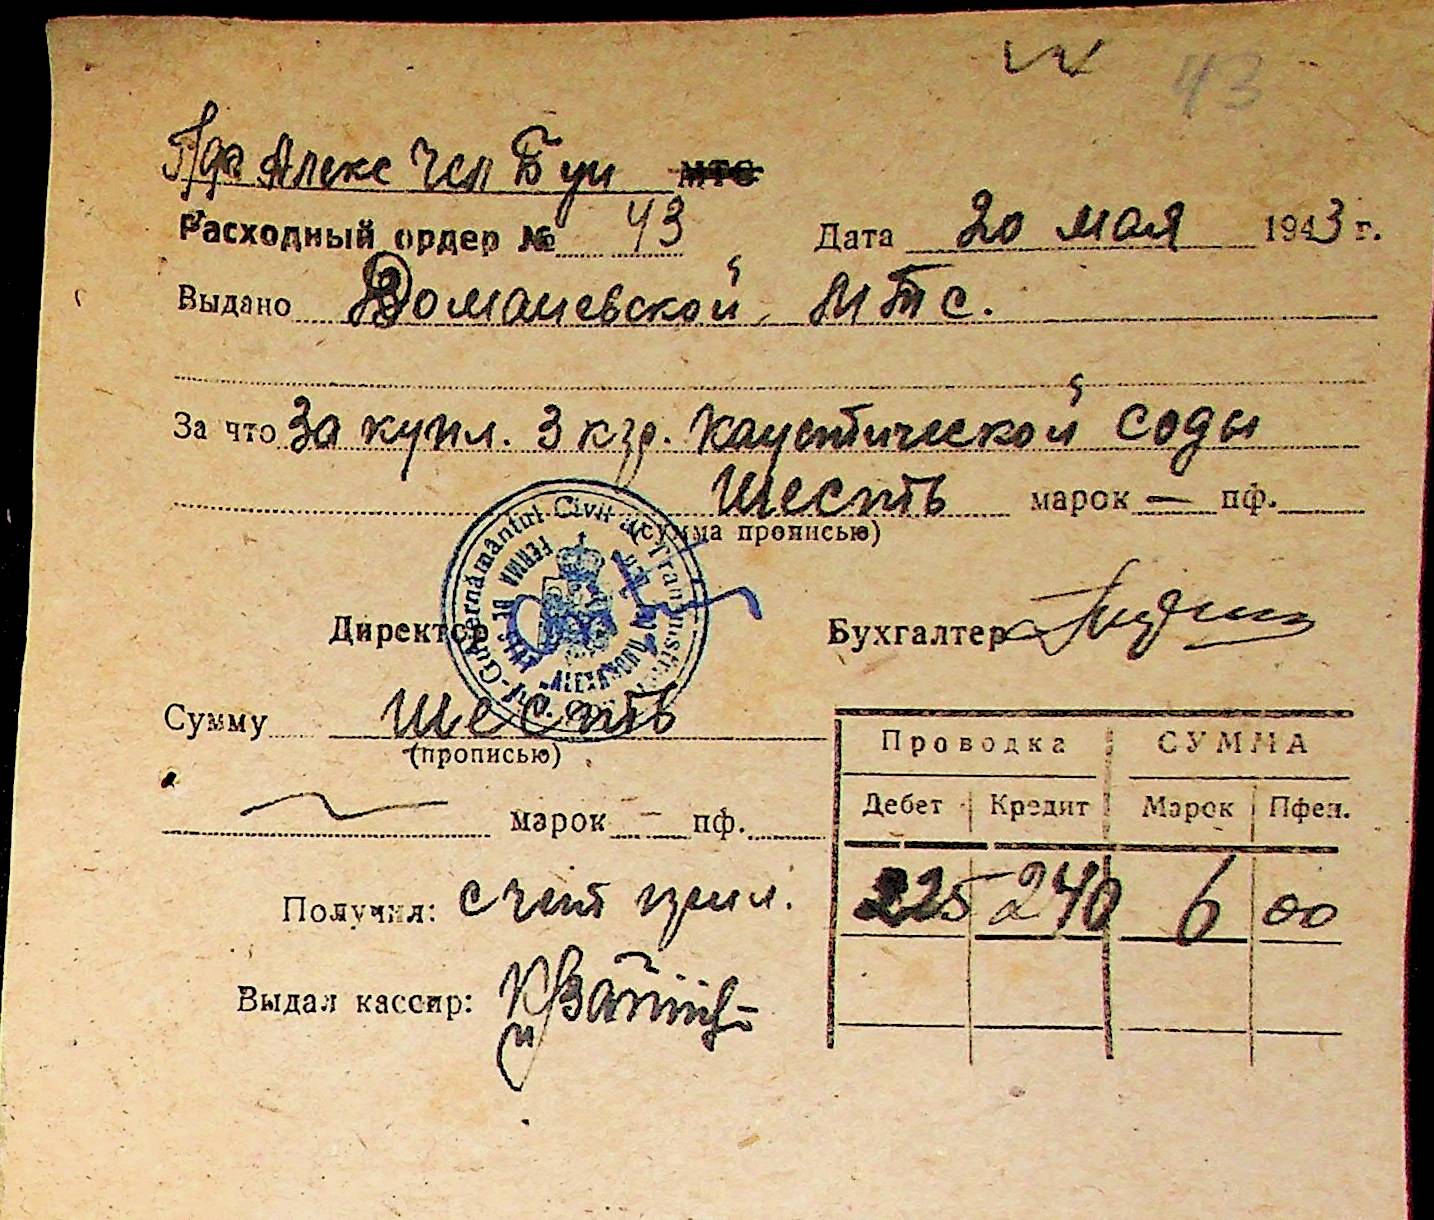 43
Алекс Чел Буи МТС
Расходный ордер № 43 Дата 20 мая 1943 г.
Выдано Доманевской МТС.
За что За купл. 3 кгр. каустической соды
Шесть марок — пф.
(сумма прописью)
Guvernământul Civil al Transnistriei
FERMA DE STAT
ALEXANDRU
Директор Бухгалтер
Сумму Шесть
(прописью)
марок – пф.
Проводка СУММА
Дебет Кредит Марок Пфен.
225 240 6 00
Получил: счет
Выдал кассир: